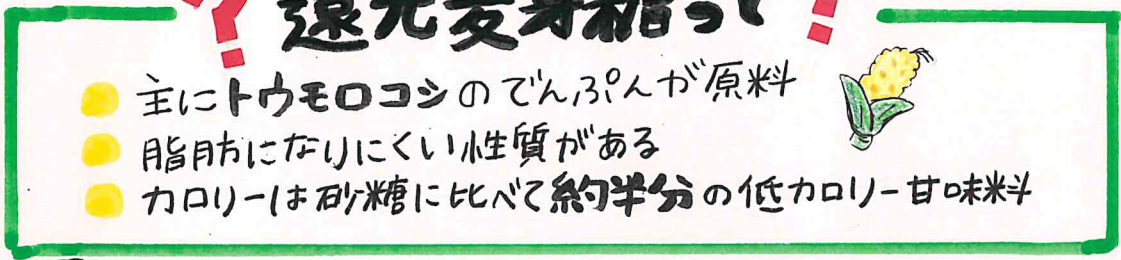 ?還元麦芽糖って?
主にトウモロコシのでんぷんが原料
脂肪になりにくい性質がある
カロリーは砂糖に比べて約半分の低カロリー甘味料